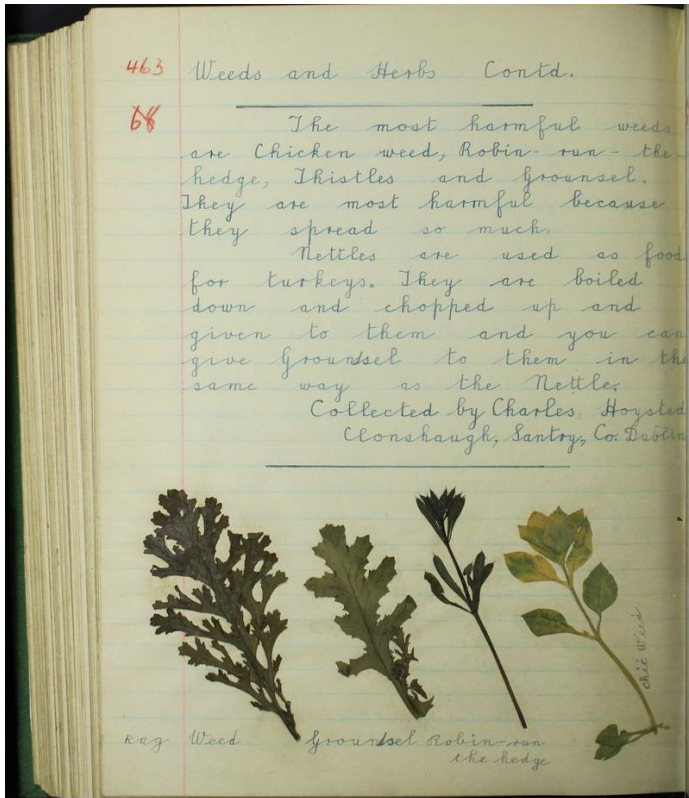 463 Weeds and Herbs Contd.
68
The most harmful weeds
are Chicken weed, Robin-run-the-
hedge, Thistles and Grounsel.
They are most harmful because
they spread so much.
Nettles are used as food
for turkeys. They are boiled
down and chopped up and
given to them and you can
give Groundsel to them in the
same way as the Nettle.
Collected by Charles, Hoysted
Clonshaugh, Santry, Co. Dublin
chic Weed
Rag Weed Groundsel Robin-run
the hedge